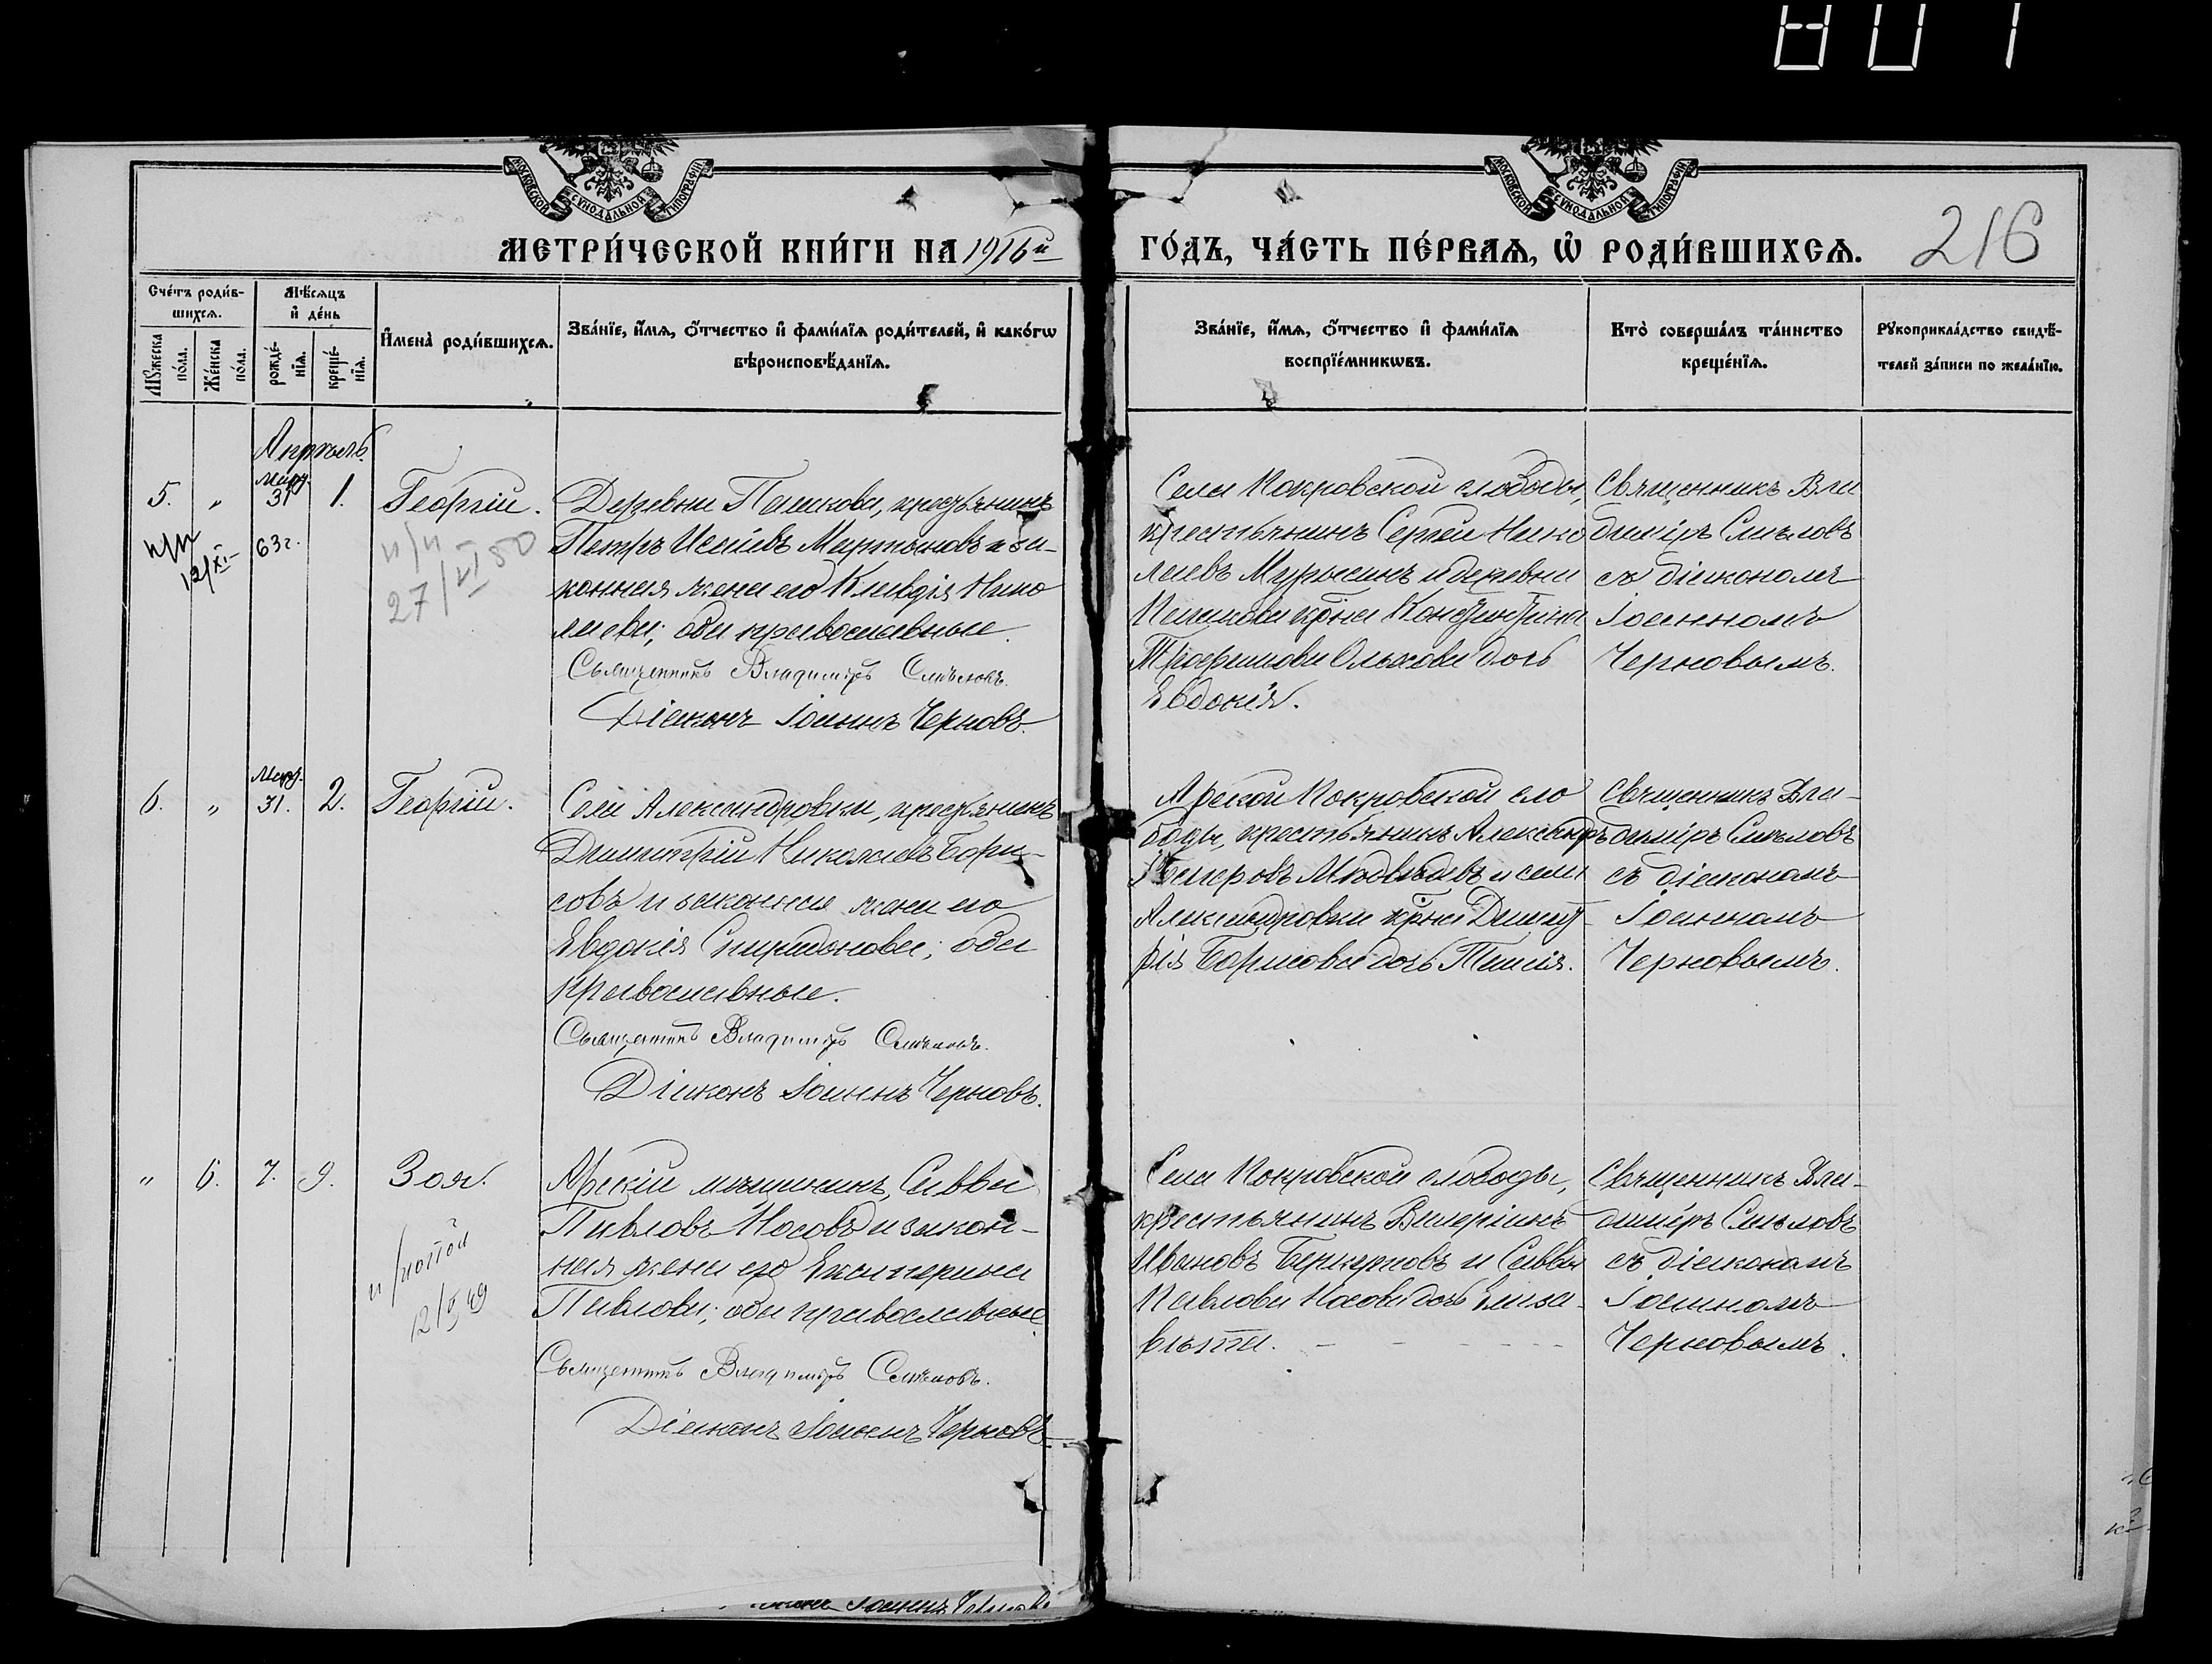 МОСКОВСКОЙ СѴНОДАЛЬНОЙ ТИПОГРАФІИ
МОСКОВСКОЙ СѴНОДАЛЬНОЙ ТИПОГРАФІИ
МЕТРИ́ЧЕСКОЙ КНИ́ГИ НА 1916й ГО́ДЪ, ЧА́СТЬ ПЕ́РВАѦ, Ѡ҆ РОДИ́ВШИХСѦ.
216
Сче́тъ роди́в-
шихсѧ.
Мѣ́сѧцъ
и҆ де́нь
Мꙋ́жеска
по́ла.
Же́нска
по́ла.
рожде́-
нїѧ.
креще́-
нїѧ.
И҆мена̀ роди́вшихсѧ.
Зва́нїе, и҆́мѧ, ѻ҆́тчество и҆ фами́лїѧ роди́телей, и҆ како́гѡ
вѣроисповѣ́данїѧ.
Зва́нїе, и҆́мѧ, ѻ҆́тчество и҆ фами́лїѧ
воспрїе́мникѡвъ.
Кто̀ соверша́лъ та́инство
креще́нїѧ.
Рꙋкоприкла́дство свидѣ́-
телей за́писи по жела́нїю.
Апрѣль
5. " Март. 31 1. Георгій.
и/п 12/XI- 63г.
и/п
27/VI 50
Деревни Пашкова, крестьянинъ
Петръ Исаіевъ Мартьяновъ и за-
конная жена его Клавдія Нико
лаева; оба православные.
Священникъ Владиміръ Смѣловъ.
Діаконъ Іоаннъ Черновъ.
Села Покровской слободы,
крестьянинъ Сергѣй Нико
лаевъ Мурысинъ и деревни
Пашкова кр̃на Константина
Трофимова Ольхова дочь
Евдокія.
Священникъ Вла
диміръ Смѣловъ
съ діакономъ
Іоанномъ
Черновымъ.
6. " Март. 31. 2. Георгій.
Села Александровки, крестьянинъ
Димитрій Николаевъ Бори-
совъ и законная жена его
Евдокія Спиридонова; оба
православные.
Священникъ Владиміръ Смѣловъ.
Діаконъ Іоаннъ Черновъ.
Арской Покровской сло
боды, крестьянинъ Александръ
Медвѣдевъ и села
Александровки кр̃на Димит
рія Борисова дочь Таисія.
Священникъ Вла-
диміръ Смѣловъ
съ діакономъ
Іоанномъ
Черновымъ.
" 6. 7. 9. Зоя.
12/V 49
Арскій мѣщанинъ, Савва
Павловъ Носовъ и закон-
ная жена его Екатерина
Павлова; оба православные.
Священникъ Владиміръ Смѣловъ.
Діаконъ Іоаннъ Черновъ
Села Покровской слободы,
крестьянинъ Валеріанъ
Ивановъ и Саввы
Павлова Носова дочь Елиза-
вѣта.
Священникъ Вла-
диміръ Смѣловъ
съ діакономъ
Іоанномъ
Черновымъ.
Іоаннъ